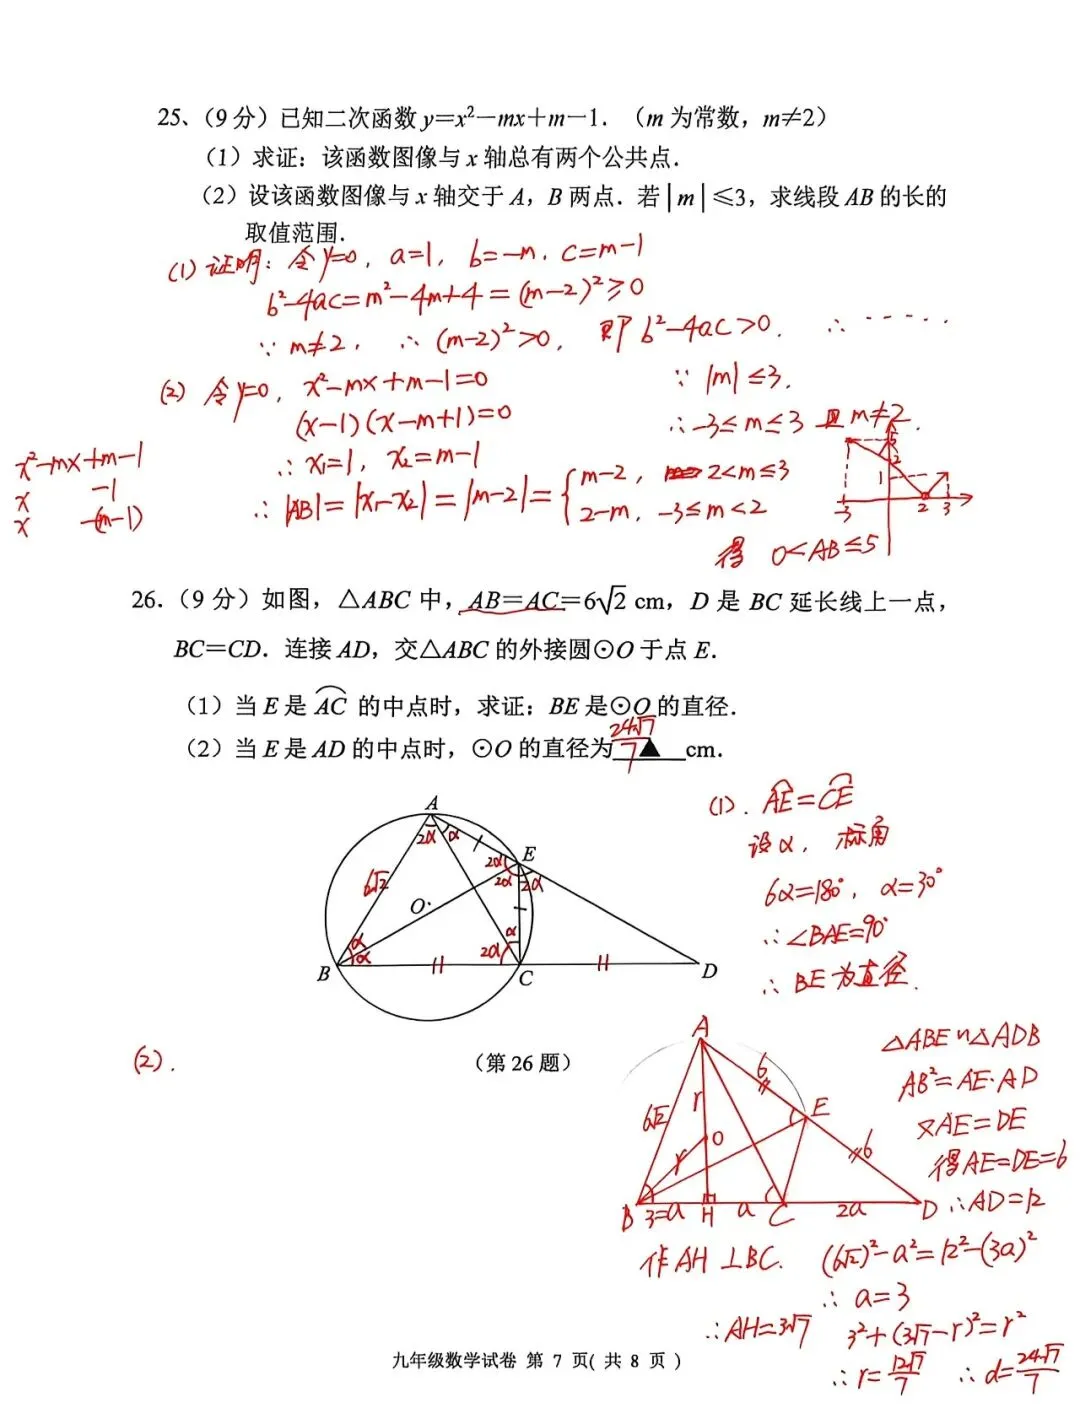 25、（9分）已知二次函数 y=x²－mx＋m－1．（m 为常数，m≠2）
（1）求证：该函数图像与 x 轴总有两个公共点．
（2）设该函数图像与 x 轴交于 A，B 两点．若|m|≤3，求线段 AB 的长的
取值范围．
(1) 证明：令y=0，a=1，b=-m，c=m-1
b²-4ac=m²-4m+4=(m-2)²≥0
∵ m≠2，∴ (m-2)²>0，即 b²-4ac>0．∴ ······
(2) 令y=0，x²-mx+m-1=0
(x-1)(x-m+1)=0
∴ x₁=1，x₂=m-1
∴ |AB|=|x₁-x₂|=|m-2|={m-2，2<m≤3
2-m，-3≤m<2
∵ |m|≤3．
∴ -3≤m≤3 且 m≠2．
得 0<AB≤5
x²-mx+m-1
x -1
x -(m-1)
5
2
1
-3 2 3
26．（9分）如图，△ABC 中，AB＝AC＝6√2 cm，D 是 BC 延长线上一点，
BC＝CD．连接 AD，交△ABC 的外接圆⊙O 于点 E．
（1）当 E 是 AC 的中点时，求证：BE 是⊙O 的直径．
（2）当 E 是 AD 的中点时，⊙O 的直径为 24√7/7 ▲ cm．
A
2α α
2α E
2α 2α
6√2
O
α
α
α
2α
B C D
（第 26 题）
(1)．AE=CE
设α，标角
6α=180°，α=30°
∴ ∠BAE=90°
∴ BE为直径．
(2)．
A
6
r
E
6√2
O
r
6
B 3=a H a C 2a D
△ABE∽△ADB
AB²=AE·AD
又AE=DE
得AE=DE=6
∴AD=12
作AH⊥BC．(6√2)²-a²=12²-(3a)²
∴ a=3
∴AH=3√7 3²+(3√7-r)²=r²
∴ r=12√7/7 ∴ d=24√7/7
九年级数学试卷 第 7 页（共 8 页）